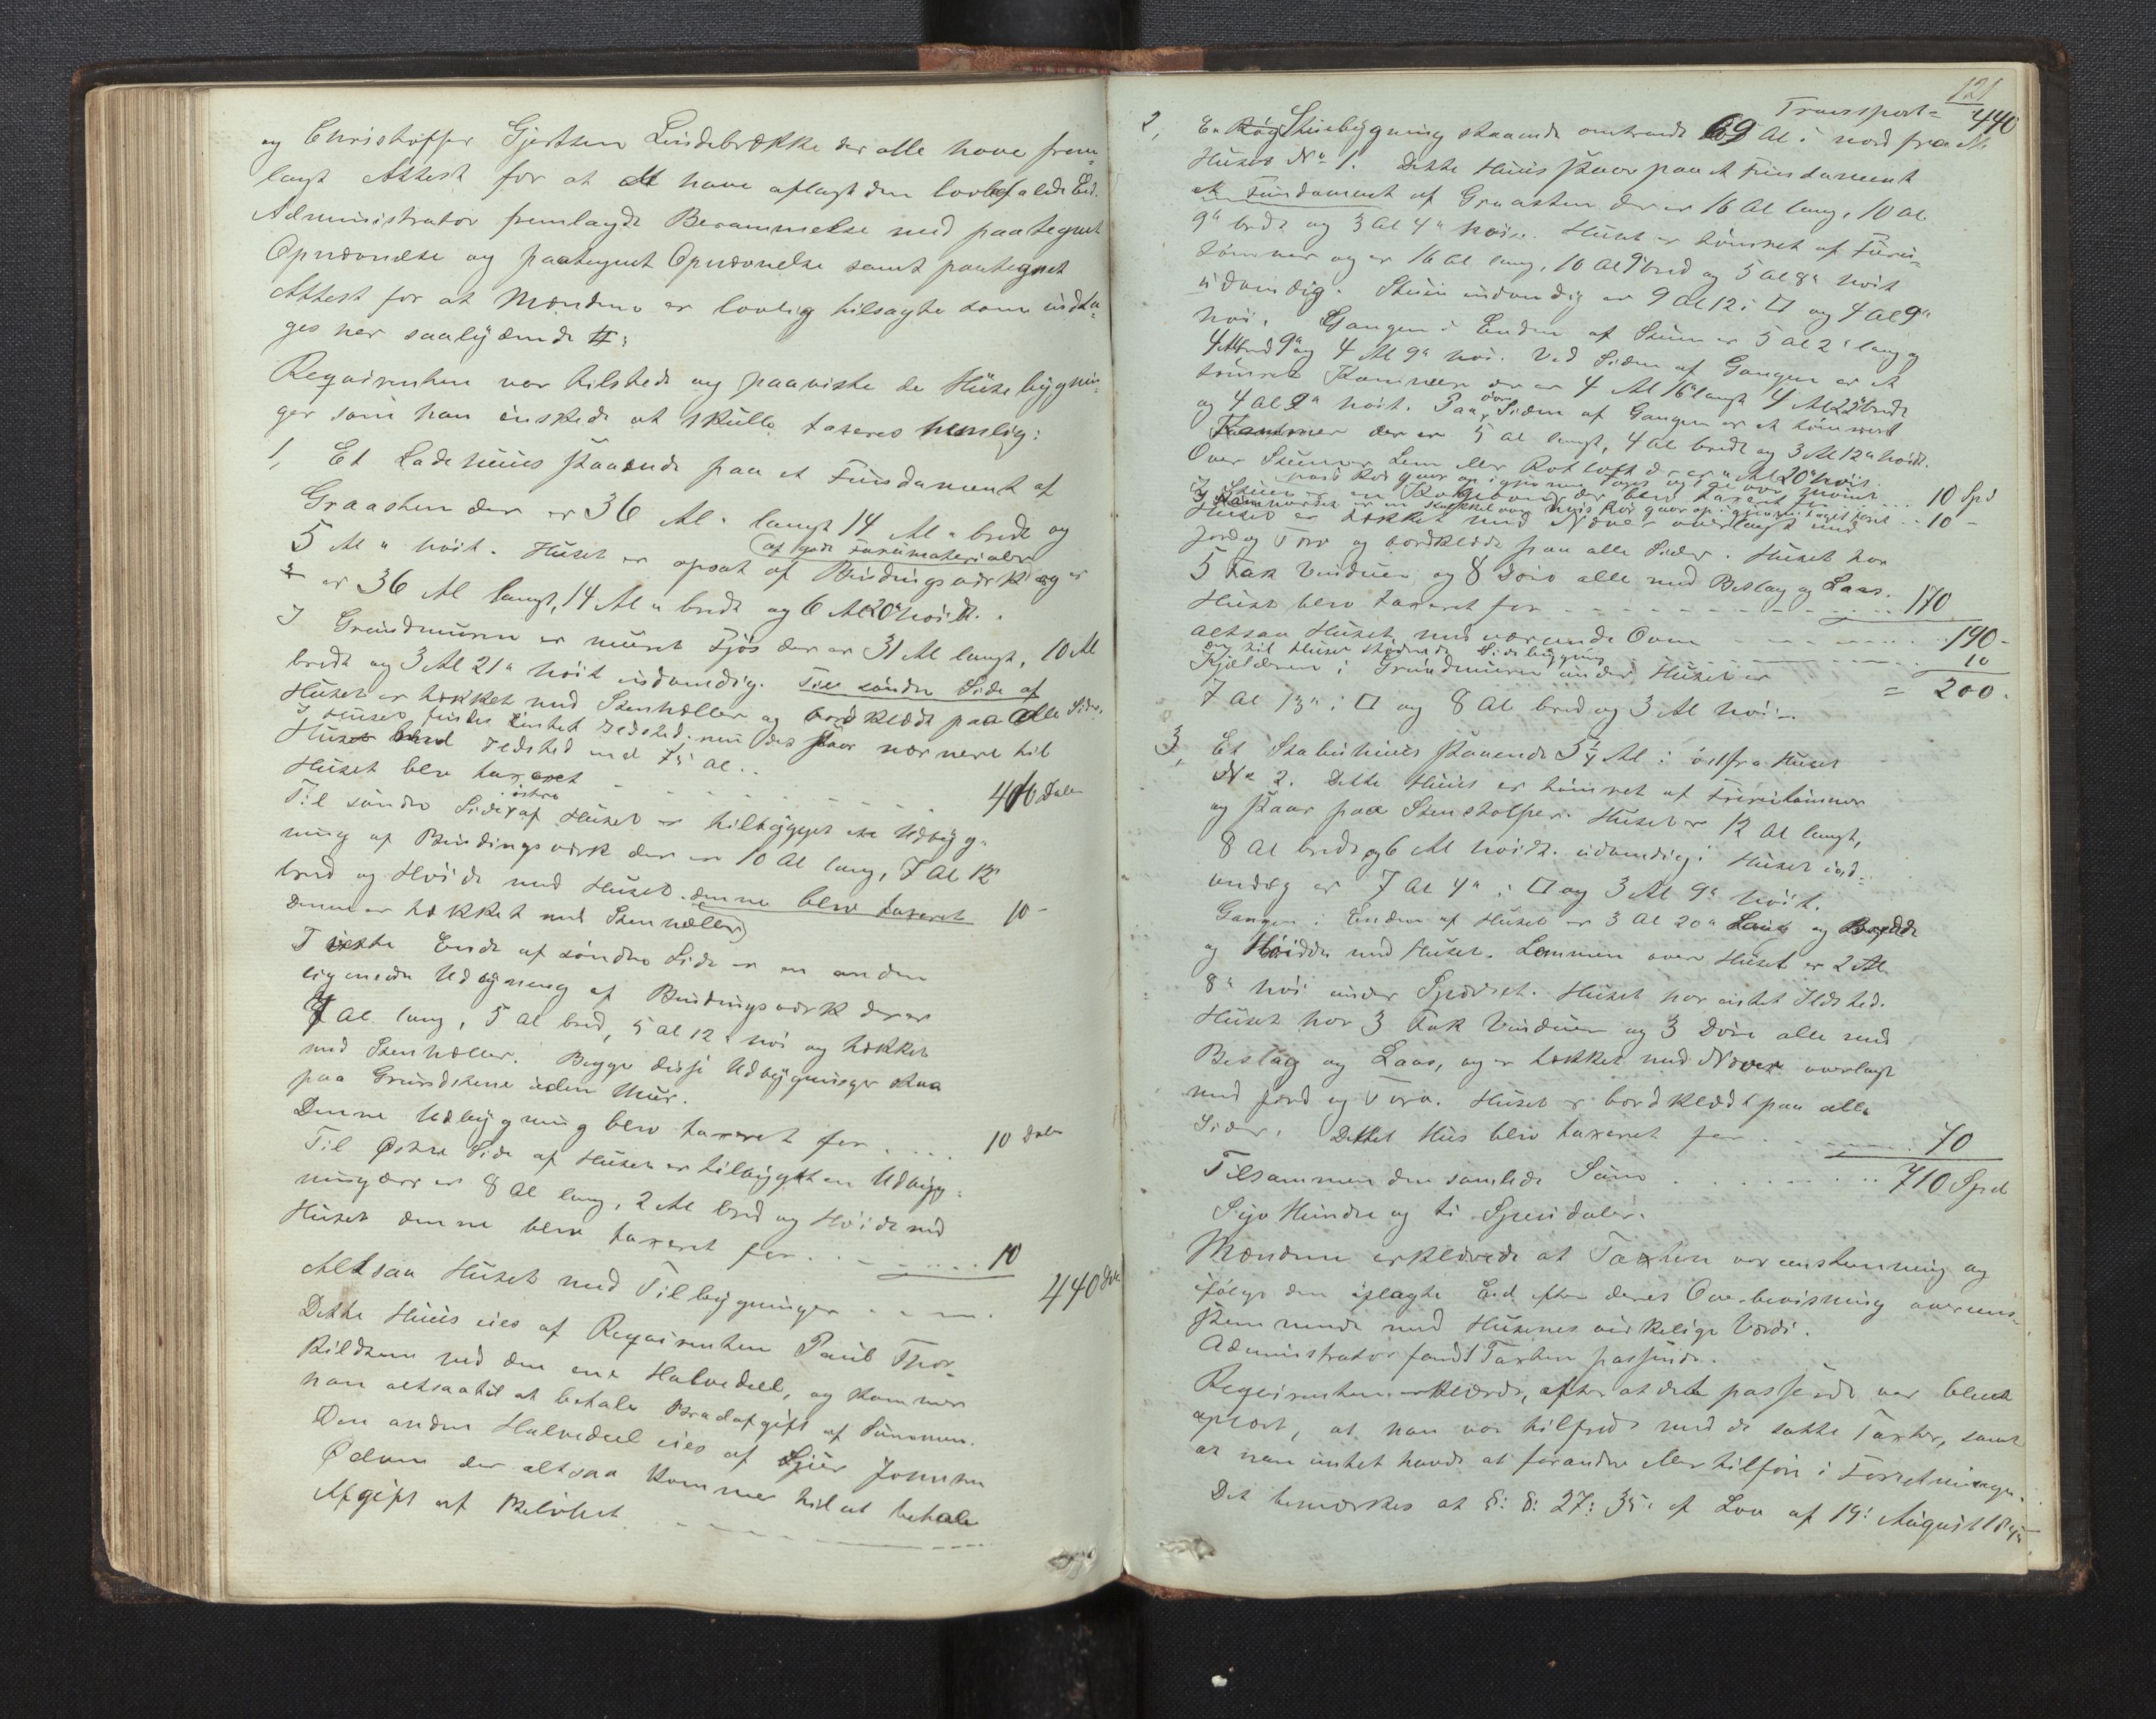 og Christoffer Gjertsen Lindebrække der alle have frem-
lagt Attest for at have aflagt den lovbefalede Eed.
Administrator fremlagde Berammelse med paategnet
Opnævnelse og paategnet Opnævnelse samt paategnet
Attest for at Mændene er lovlig tilsagte som indta-
ges her saalydende #:
Reqvirenten var tilstede og paaviste de Huse bygnin-
ger som han önskede at skulle taxeres nemlig:
1, Et Ladehuus staaende paa et Fundament af
Graasten der er 36 Al. langt 14 Al " bredt og
5 Al " höit. Huset er opsat af Bindingsværk og er
af gode Furumaterialer
er 36 Al langt, 14 Al " bredt og 6 Al 20" höit.
I Grundmuren er muret Fjös der er 31 Al langt, 10 Al
bredt og 3 Al 21" höit indvendig. Til söndre Side af
Huset er tækket med Stenheller og bordklædt paa alle Sider.
I Huset findes intet Ildsted men des staar nær nere til
Huset Ildsted end 75 Al.
Huset blev taxeret 400 Daler
Til söndre Side af Huset er tilbygget en Udbyg-
östre
ning af Bindingsværk der er 10 Al lang, 7 Al 12"
bred og Höide med Huset. denne blev taxeret 10 -
Denne er tækket med Stenheller
I vestre Ende af söndre Side er en anden
lignende Udbygning af Bindingsværk der er
7 Al lang, 5 Al bred, 5 Al 12" höi og tækket
med Stenheller. Begge disse Udbygninger staa
paa Grundstene uden Muur.
Denne Udbygning blev taxeret for .... 10 Daler
Til Östre Side af Huset er tilbygget en Udbyg-
ning der er 8 Al lang, 2 Al bred og Höide med
Huset denne blev taxeret for ..... 10
Altsaa Huset med Tilbygninger .... 440 Dlr.
Dette Huus eies af Reqvirenten Paul Thor-
kildsen ved den ene Halvedeel, og kommer
han altsaa til at betale Brandafgift af Summen.
Den anden Halvedeel eies af Sjur Johnsen
Ødven der altsaa kommer til at betale
Afgift af Belöbet
121
Transport = 440
2, En Rög Stuebygning staaende omtrendt 69 Al i nord fra
Huset No 1. Dette Huus staar paa et Fundament
et Fundament af Graasten der er 16 Al lang, 10 Al
9" bredt og 3 Al 4" höi. Huset er tömret af Furu-
tömmer og er 16 Al lang, 10 Al 9" bred og 5 Al 8" höit
udvendig. Stuen indvendig er 9 Al 12 i □ og 4 Al 9"
höi. Gangen i Enden af Stuen er 5 Al 2" lang og
4 Al bred 9" og 4 Al 9" höi. Ved Siden af Gangen er et
tömret Kammer der er 4 Al 16" langt 4 Al 22" bredt
og 4 Al 9" höit. Paa Siden af Gangen er et tömmret
Kammer der er 5 Al langt, 4 Al bredt og 3 Al 12" höit.
Over Stuen er Lem eller Rotloft der er " Al 20" höit.
I Stuen er en Kakkelovn der blev taxeret for .... 10 Spd
I Kammerset er en Kakkelovn hvis Rör gaar op igjennem Taget taxt .. 10 -
Huset er tækket med Næver overlagt med
Jord og Torv og bordklædt paa alle Sider. Huset har
5 Fak Vinduer og 8 Döre alle med Beslag og Laas.
Huset blev taxeret for ..... 170
altsaa Huset med værende Ovne ..... 190 -
en til Huset stödende Sidebygning ..... 10
Kjelderen i Grundmuren under Huset er = 200.
7 Al 13" i □ og 8 Al bred og 3 Al höi.
3, Et Stabuhuus staaende 5 1/4 Al i öst fra Huset
No 2. Dette Huus er tömret af Furutömmer
og staar paa Stenstolper. Huset er 12 Al langt,
8 Al bredt og 6 Al höidt. udvendig. Huset ind-
vendig er 7 Al 4" i □ og 3 Al 9" höit.
Gangen i Enden af Huset er 3 Al 20" Lang og Bredde
og Höidde med Huset. Lemmen over Huset er 2 Al
8" höi under Sperret. Huset har intet Ildsted.
Huset har 3 Fak Vinduer og 3 Döre alle med
Beslag og Laas, og er tækket med Næver overlagt
med Jord og Torv. Huset er bordklædt paa alle
Sider. Dette Hus blev taxeret for ..... 70
Tilsammen den samlede Sum ....... 710 Spd
Syv Hundre og ti Speciedaler.
Mændene erklærede at Taxten var enstemmig og
ifölge den aflagte Eed efter deres Overbevisning overens-
stemmende med Husenes virkelige Værdi.
Administrator fandt Taxten passende.
Reqvirenten erklærede, efter at dette passerede var bleven
oplæst, at han var tilfreds med de satte Taxter, samt
at han intet havde at forandre eller tilföie i Forretningen.
Det bemærkes at §: 8: 27: 35: af Lov af 19: August 1845